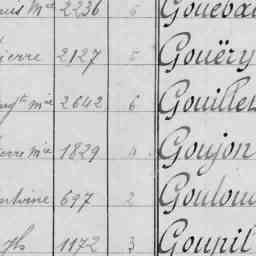 uis Mie 2236 5 Goueba
ierre 2127 5 Gouëry
gte mie 2642 6 Gouillet
erre Mie 1829 4 Goujon
ntoine 697 2 Goulou
ph 1172 3 Goupil